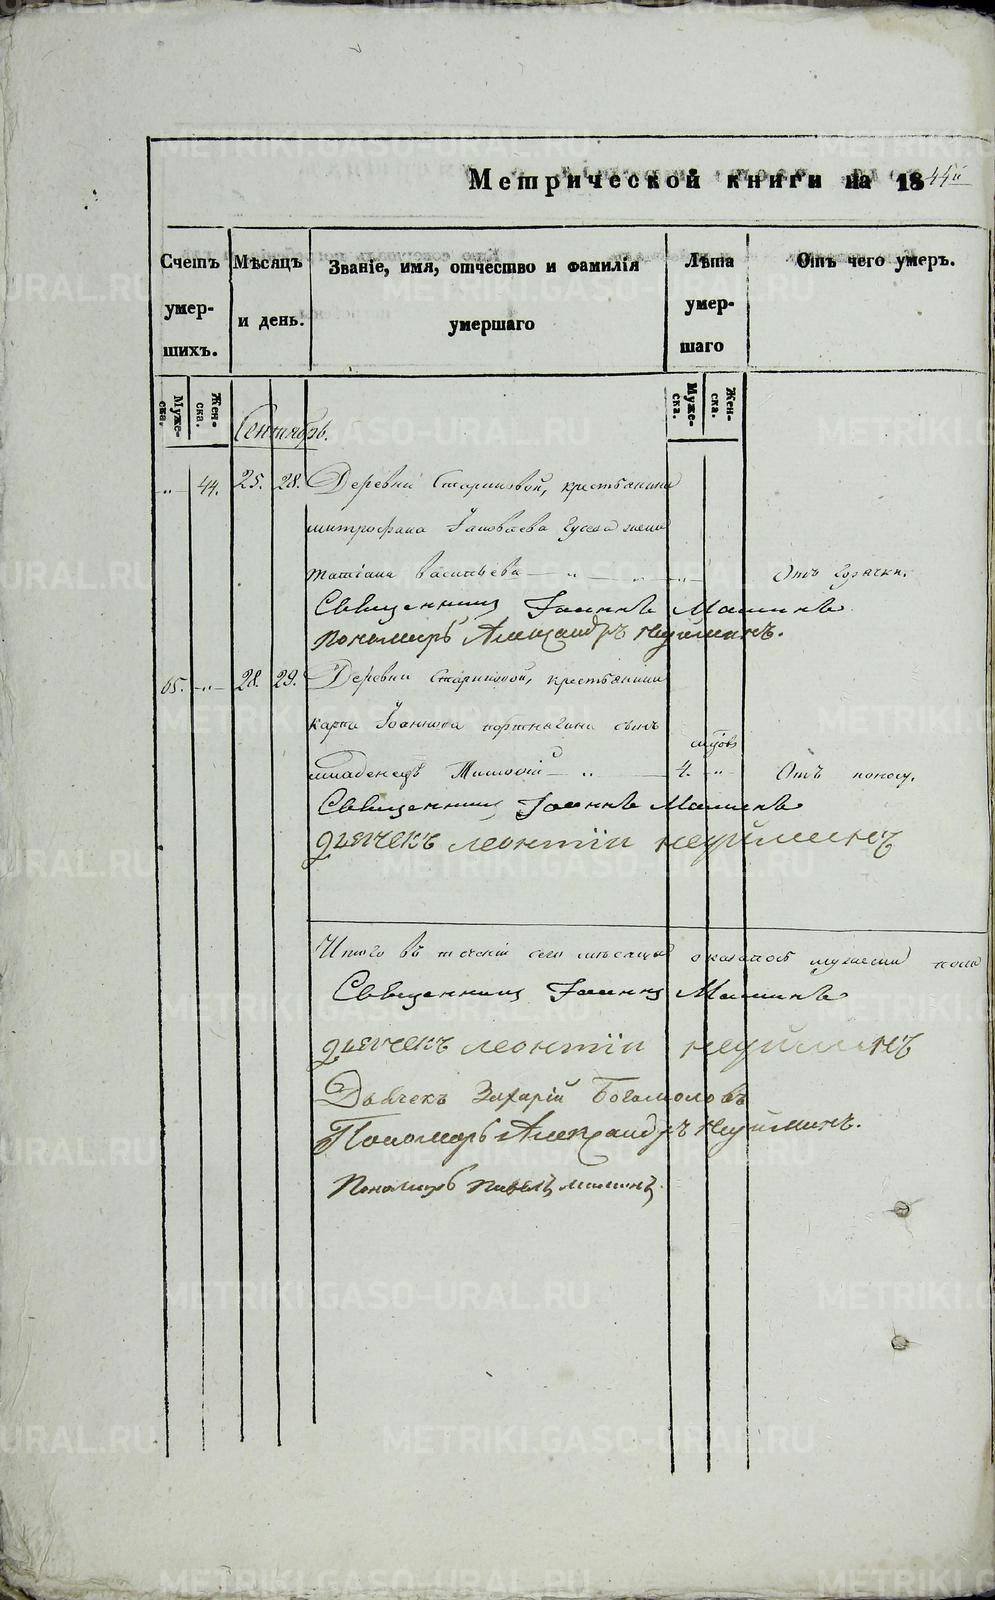 Метрической книги на 1844й
Счетъ умер-шихъ.
Мѣсяцъ и день.
Званіе, имя, отчество и фамилія умершаго
Лѣта умер-шаго
Отъ чего умеръ.
Муже-ска.
Жен-ска.
Муже-ска.
Жен-ска.
Сентябрь.
„ 44. 25. 28. Деревни Стариковой, крестьянина
митрофана Іаковлева Гусева жена
татіана васильева — „ — „ — „ Отъ горячки.
Священникъ Іоаннъ Малинъ
пономарь Александръ Неуйминъ.
65. „ 28. 29. Деревни Стариковой, крестьянина
карпа Іоаннова портнягина сынъ
младенецъ — „ — 4. „ Отъ поносу.
Священникъ Іоаннъ Малинъ
дьячекъ леонтiи неуйминъ
Итого въ теченіи сего мѣсяца оказалось мужеска пола
Священникъ Іоаннъ Малинъ
дьячекъ леонтiи неуйминъ
Дьячекъ Захарій Богомоловъ
Пономарь Александръ Неуйминъ.
Пономарь павелъ малинъ.
METRIKI.GASO-URAL.RU